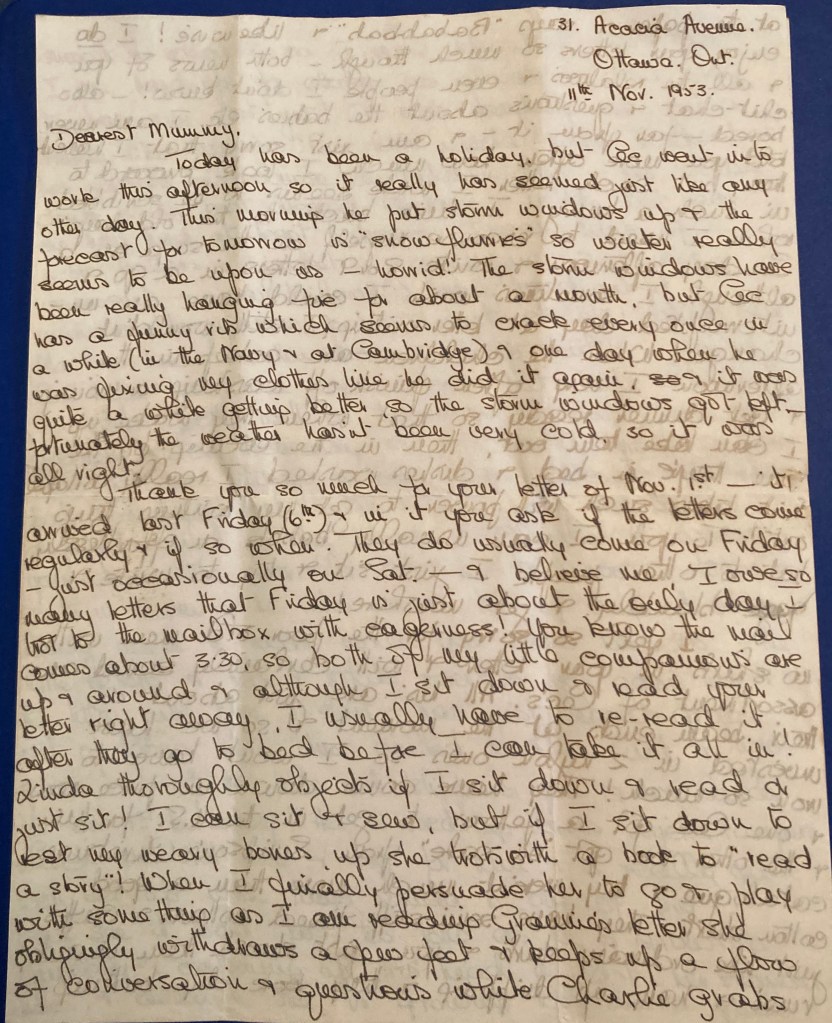 31. Acacia Avenue.
Ottawa. Ont.
11th Nov. 1953.
Dearest Mummy.
Today has been a holiday, but Cec went into
work this afternoon so it really has seemed just like any
other day. This morning he put storm windows up & the
forecast for tomorrow is "snow flurries" so winter really
seems to be upon us – horrid! The storm windows have
been really hanging fire for about a month, but Cec
has a funny rib which seems to crack every once in
a while (in the Navy & at Cambridge) & one day when he
was fixing my clothes line he did it again, & it was
quite a while getting better so the storm windows got left –
fortunately the weather hasn't been very cold, so it was
all right.
Thank you so much for your letter of Nov. 1st — it
arrived last Friday (6th) & in it you ask if the letters come
regularly & if so when. They do usually come on Friday
– just occasionally on Sat. – & believe me, I owe so
many letters that Friday is just about the only day I
trot to the mailbox with eagerness! You know the mail
comes about 3.30, so both of my little companions are
up & around & although I sit down & read your
letter right away, I usually have to re-read it
after they go to bed before I can take it all in!
Linda thoroughly objects if I sit down & read or
just sit! I can sit & sew, but if I sit down to
rest my weary bones, up she trots with a book to "read
a story"! When I finally persuade her to go & play
with something as I am reading Grannie's letter she
obligingly withdraws a few feet & keeps up a flow
of conversation & questions while Charlie grabs